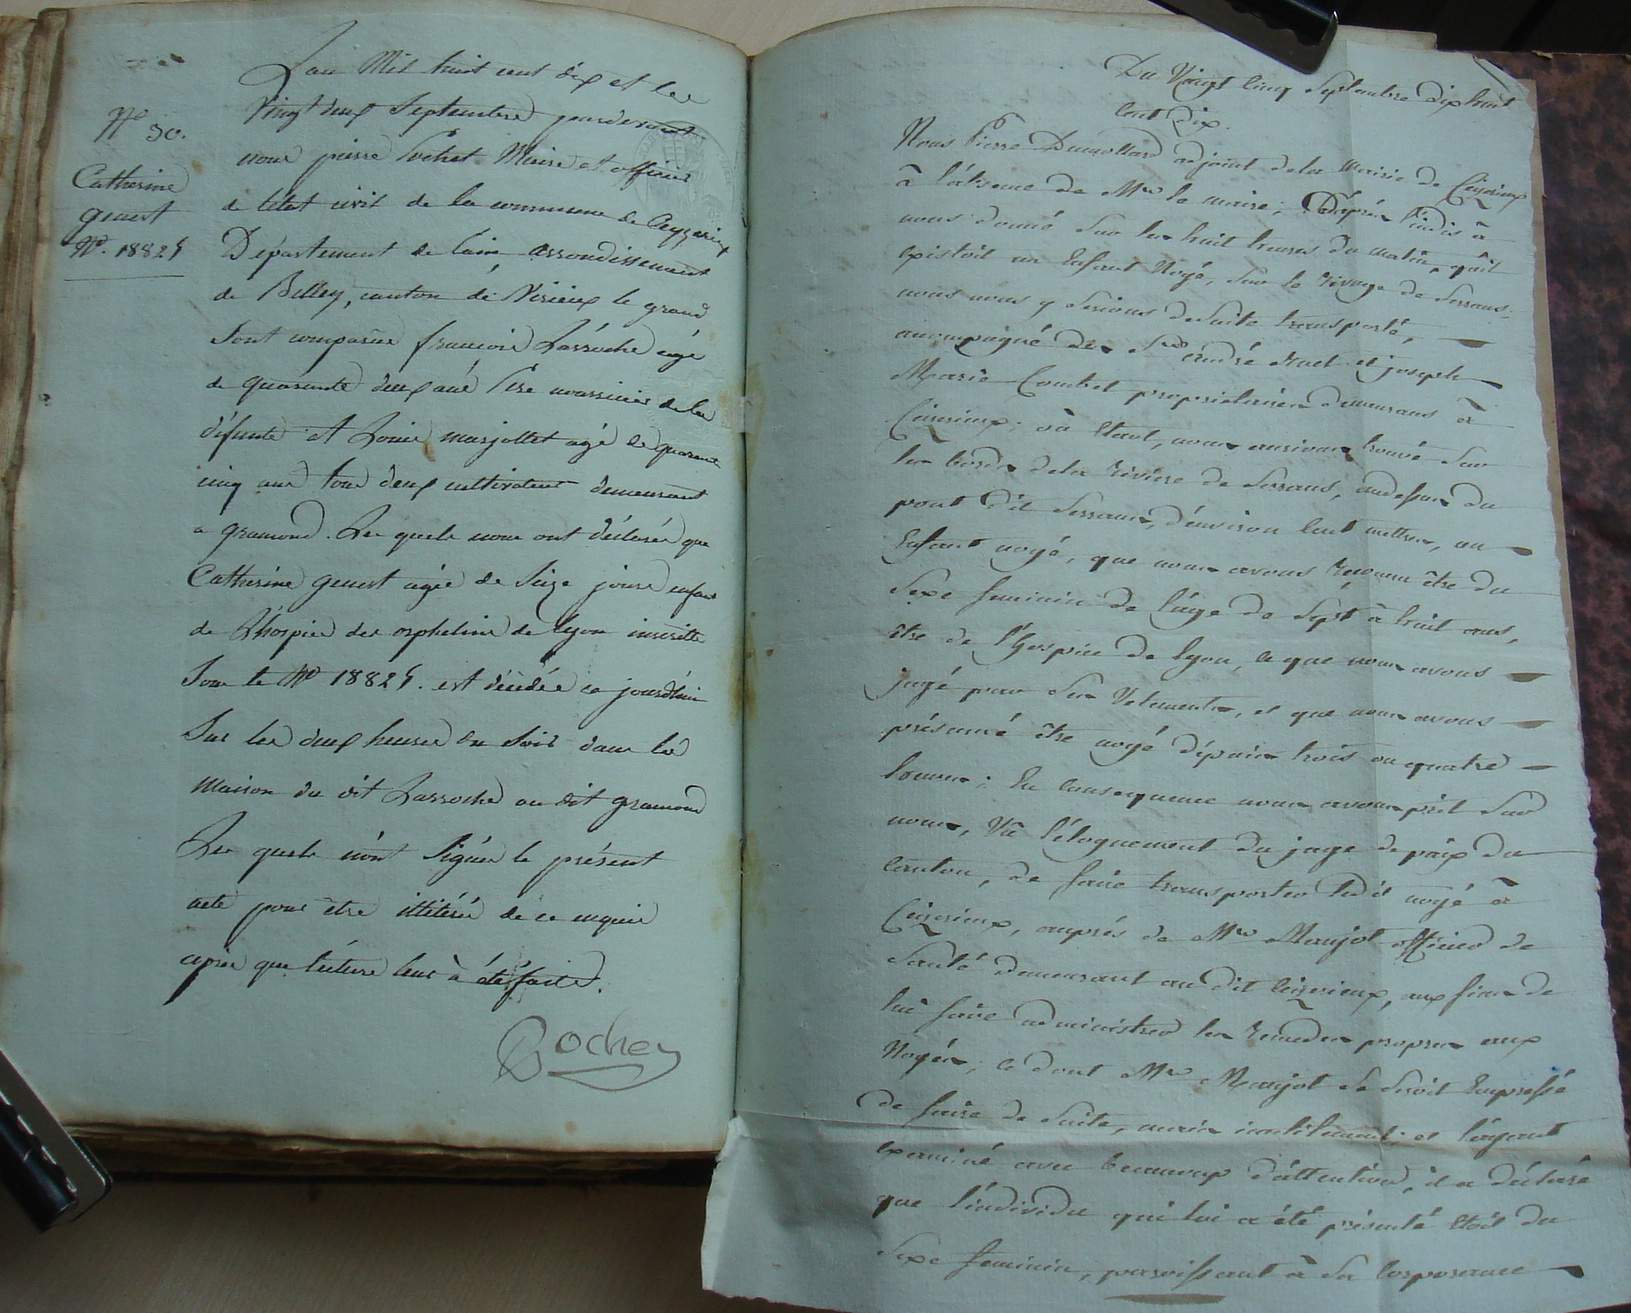 N° 30.
Catherine
genest
N°. 18824
L'an Mil huit cent dix et les
vingt deux Septembre pardevant
nous pierre Rochet Maire et officier
de l'état civil de la commune de Ceyzerieux
Département de l'ain arrondissement
de Belley, canton de Virieux le grand
Sont comparus francois Larroche agé
de quarante deux ans Père nourricier de la
défunte et Louis marjollet agé de quarante
cinq ans tous deux cultivateurs demeurant
a gramond. Les quels nous ont déclaré que
Catherine genest agée de Seize jours enfant
de L'hospice des orphelins de Lyon inscritte
Sous le N° 18824. est décédée ce jourd'hui
Sur les deux heures du Soir dans la
maison du dit Larroche au dit gramond
Les quels n'ont Signés le présent
acte pour être illitérés de ce enquis
après que lécture leur à été faite.
Rochey
Du Vingt Cinq Septembre dix huit
Cent Dix.
Nous Pierre Dumollard adjoint de la Mairie de Ceyzerieux
à l'absence de Mr le maire; D'après l'indis à
nous donné Sur les huit heures du matin, qu'il
existoit un Enfant Noyé, Sur le rivage de Serrans;
nous nous y Serions de Suite transporté,
accompagné des Srs André et joseph
Marie Combet propriétaires demeurans à
Ceizerieux; où Etant, nous aurions trouvé Sur
les bords de la Rivière de Serrans, audessus du
pont dit Serrans, d'environ Cent mettres, un
Enfant noyé, que nous avons Reconnu être du
Sexe feminin de l'âge de Sept à huit ans,
être de l'Hospice de Lyon, ce que nous avons
jugé par Ses Vetements, et que nous avons
présumé être noyé dépuis trois ou quatre
heures; En Consequence nous avons prit Sur
nous, Vû l'éloignement du juge de paix du
Canton, de faire transporter le dit noyé à
Ceizerieux, auprès de Mr Maujot officier de
Santé demeurant au dit Ceizerieux, aux fins de
lui faire administrer les Remedes propres aux
Noyés; ce dont Mr Maujot Se Seroit Empressé
de faire de Suite, mais inutilement; et l'ayant
examiné avec beaucoup d'attention, il a déclaré
que l'individu qui lui a été présenté Etoit du
Sexe feminin, paroissant à Sa Corporance